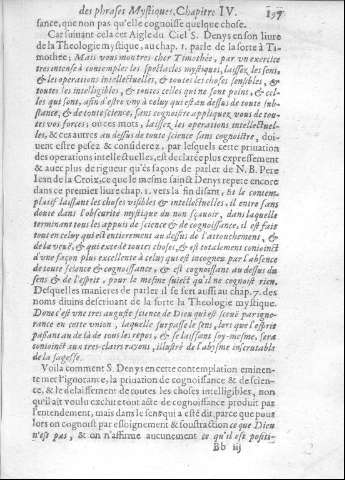 des phrases Mystiques. Chapitre IV. 197
sance, que non pas qu'elle cognoisse quelque chose.
Car suivant cela cet Aigle du Ciel S. Denys en son livre
de la Theologie mystique, au chap. 1. parle de la sorte à Ti-
mothée; Mais vous montres cher Timothée, par vn exercice
tres intense à contempler les spectacles mystiques, laissez les sens,
& les operations intellectuelles, & toutes les choses sensibles, &
toutes les intelligibles, & toutes celles qui ne sont point, & cel-
les qui sont, afin d'estre vny à celuy qui est au dessus de toute sub-
stance, & de toute science, sans cognoistre appliquez vous de tou-
tes vos forces; où ces mots, laissez les operations intellectuel-
les, & ces autres au dessus de toute science sans cognoistre, doi-
uent estre pesez & considerez, par lesquels cette priuation
des operations intellectuelles, est declarée plus expressement
& auec plus de rigueur qu'és façons de parler de N. B. Pere
Iean de la Croix, ce que le mesme sainct Denys repete encore
dans ce premier liure chap. 1. vers la fin disant, Et le contem-
platif laissant les choses visibles & intellectuelles, il entre sans
doute dans l'obscurité mystique du non sçauoir, dans laquelle
terminant tous les appuis de science & de cognoissance, il est fait
tout en celuy qui est entierement au dessus de l'attouchement, &
de la veuë, & qui excede toutes choses, & est totalement conioinct
d'vne façon plus excellente à celuy qui est incogneu par l'absence
de toute science & cognoissance, & est cognoissant au dessus du
sens & de l'esprit, pour le mesme suiect qu'il ne cognoist rien.
Desquelles manieres de parler il se sert aussi au chap. 7. des
noms diuins descriuant de la sorte la Theologie mystique.
Donc est vne tres auguste science de Dieu qui est sçeuë par igno-
rance en cette vnion, laquelle surpasse le sens, lors que l'esprit
passant au de là de tous les repos, & se laissant soy-mesme, sera
conioinct aux tres-clairs rayons, illustré de l'abysme inscrutable
de la sagesse.
Voila comment S. Denys en cette contemplation eminen-
te met l'ignorance, la priuation de cognoissance & de scien-
ce, & le delaissement de toutes les choses intelligibles, non
qu'il ait voulu exclure tout acte de cognoissance produit par
l'entendement, mais dans le sens qui a esté dit, parce que pour
lors on cognoist par esloignement & soustraction ce que Dieu
n'est pas, & on n'affirme aucunement ce qu'il est positi-
Bb iij